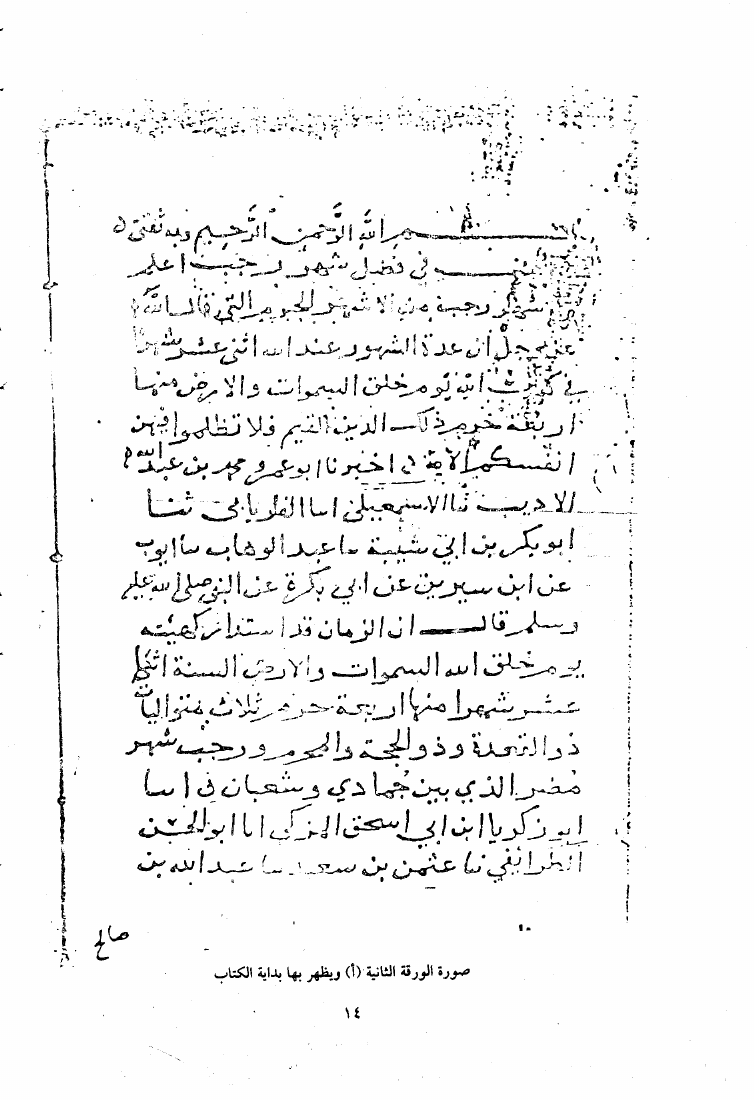 بسم الله الرحمن الرحيم وبه ثقتي
في فضل شهر رجب اعلم
شهر رجب من الاشهر الحرم التي قال الله
عز وجل ان عدة الشهور عند الله اثنى عشر شهرا
في كتاب الله يوم خلق السموات والارض منها
اربعة حرم ذلك الدين القيم فلا تظلموا فيهن
انفسكم الآية اخبرنا ابو عمرو محمد بن عبد الله
الاديب ثنا الاسمعيلي انا الفريابي ثنا
ابو بكر بن ابي شيبة نا عبد الوهاب نا ايوب
عن ابن سيرين عن ابي بكرة عن النبي صلى الله عليه
وسلم قال ان الزمان قد استدار كهيئته
يوم خلق الله السموات والارض السنة اثني
عشر شهرا منها اربعة حرم ثلاث متواليات
ذو القعدة وذو الحجة والمحرم ورجب شهر
مضر الذي بين جمادي وشعبان انا
ابو زكريا ابن ابي اسحق المزكي انا ابو الحسن
الطرائفي نا عثمن بن سعيد نا عبد الله بن
صالح
صورة الورقة الثانية (أ) ويظهر بها بداية الكتاب
١٤